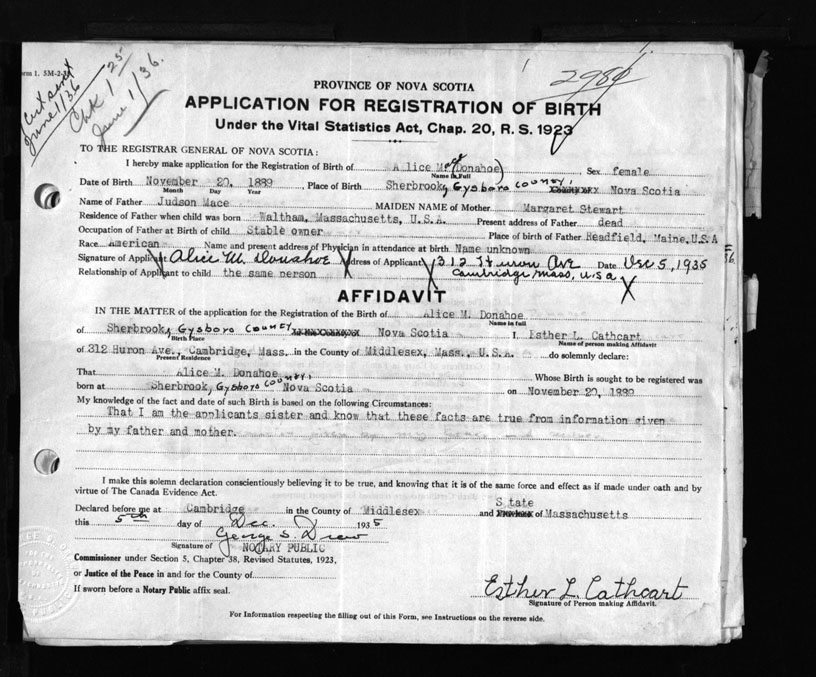 Form 1. 5M-2-3
Cert sent
June 1/36
Chk 1.25
June 1/36.
298¢
PROVINCE OF NOVA SCOTIA
APPLICATION FOR REGISTRATION OF BIRTH
Under the Vital Statistics Act, Chap. 20, R. S. 1923
TO THE REGISTRAR GENERAL OF NOVA SCOTIA:
I hereby make application for the Registration of Birth of Alice M (Donahoe) Sex female
Name in Full
Date of Birth November 20, 1889, Place of Birth Sherbrook, Gysboro County, Nova Scotia
Month Day Year
Name of Father Judson Mace MAIDEN NAME of Mother Margaret Stewart
Residence of Father when child was born Waltham, Massachusetts, U.S.A. Present address of Father dead
Occupation of Father at Birth of child Stable owner Place of birth of Father Readfield, Maine, U.S.A
Race American Name and present address of Physician in attendance at birth Name unknown
Signature of Applicant X Alice M. Donahoe X Address of Applicant X 312 Huron Ave Date Dec 5, 1935
Relationship of Applicant to child the same person Cambridge, Mass, U.S.A X
AFFIDAVIT
IN THE MATTER of the application for the Registration of the Birth of Alice M. Donahoe
Name in full
of Sherbrook, Gysboro County Nova Scotia I, Esther L. Cathcart
Birth Place Name of person making Affidavit
of 312 Huron Ave., Cambridge, Mass. in the County of Middlesex, Mass., U.S.A. do solemnly declare:
Present Residence
That Alice M. Donahoe Whose Birth is sought to be registered was
born at Sherbrook, Gysboro County, Nova Scotia on November 20, 1889
My knowledge of the fact and date of such Birth is based on the following Circumstances:
That I am the applicants sister and know that these facts are true from information given
by my father and mother.
I make this solemn declaration conscientiously believing it to be true, and knowing that it is of the same force and effect as if made under oath and by
virtue of The Canada Evidence Act.
Declared before me at Cambridge in the County of Middlesex and State of Massachusetts
this 5th day of Dec. 1935
George S. Drew
Signature of NOTARY PUBLIC
Commissioner under Section 5, Chapter 38, Revised Statutes, 1923,
or Justice of the Peace in and for the County of
If sworn before a Notary Public affix seal.
Esther L. Cathcart
Signature of Person making Affidavit.
For Information respecting the filling out of this Form, see Instructions on the reverse side.